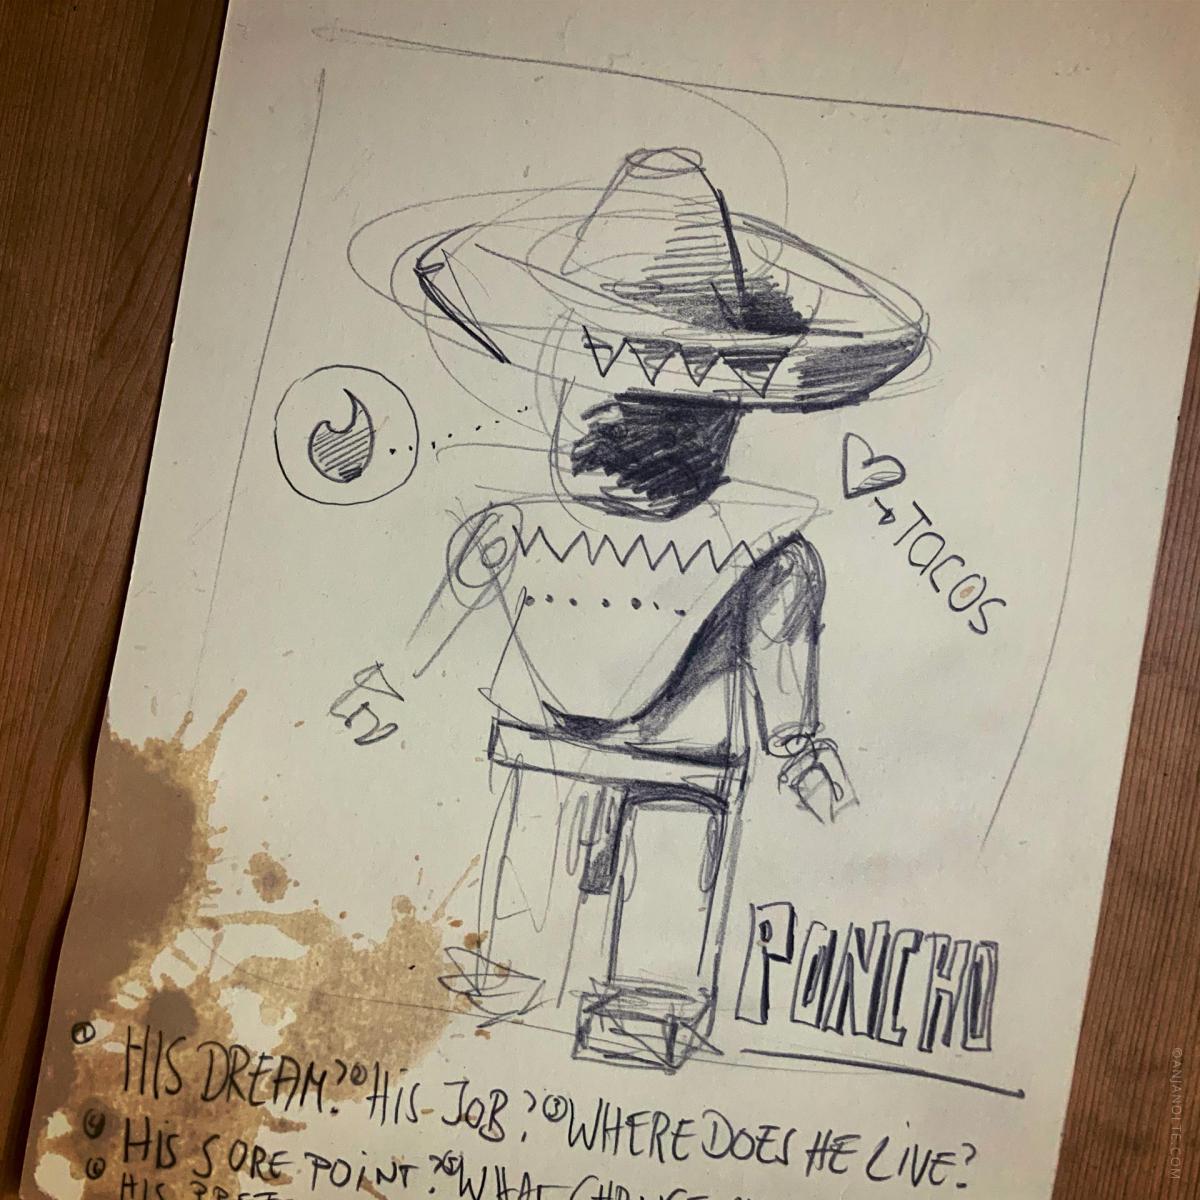 TACOS
PONCHO
① HIS DREAM? ② HIS JOB? ③ WHERE DOES HE LIVE?
④ HIS SORE POINT? ⑤ WHAT
⑥ HIS
©ANJANOLTE.COM